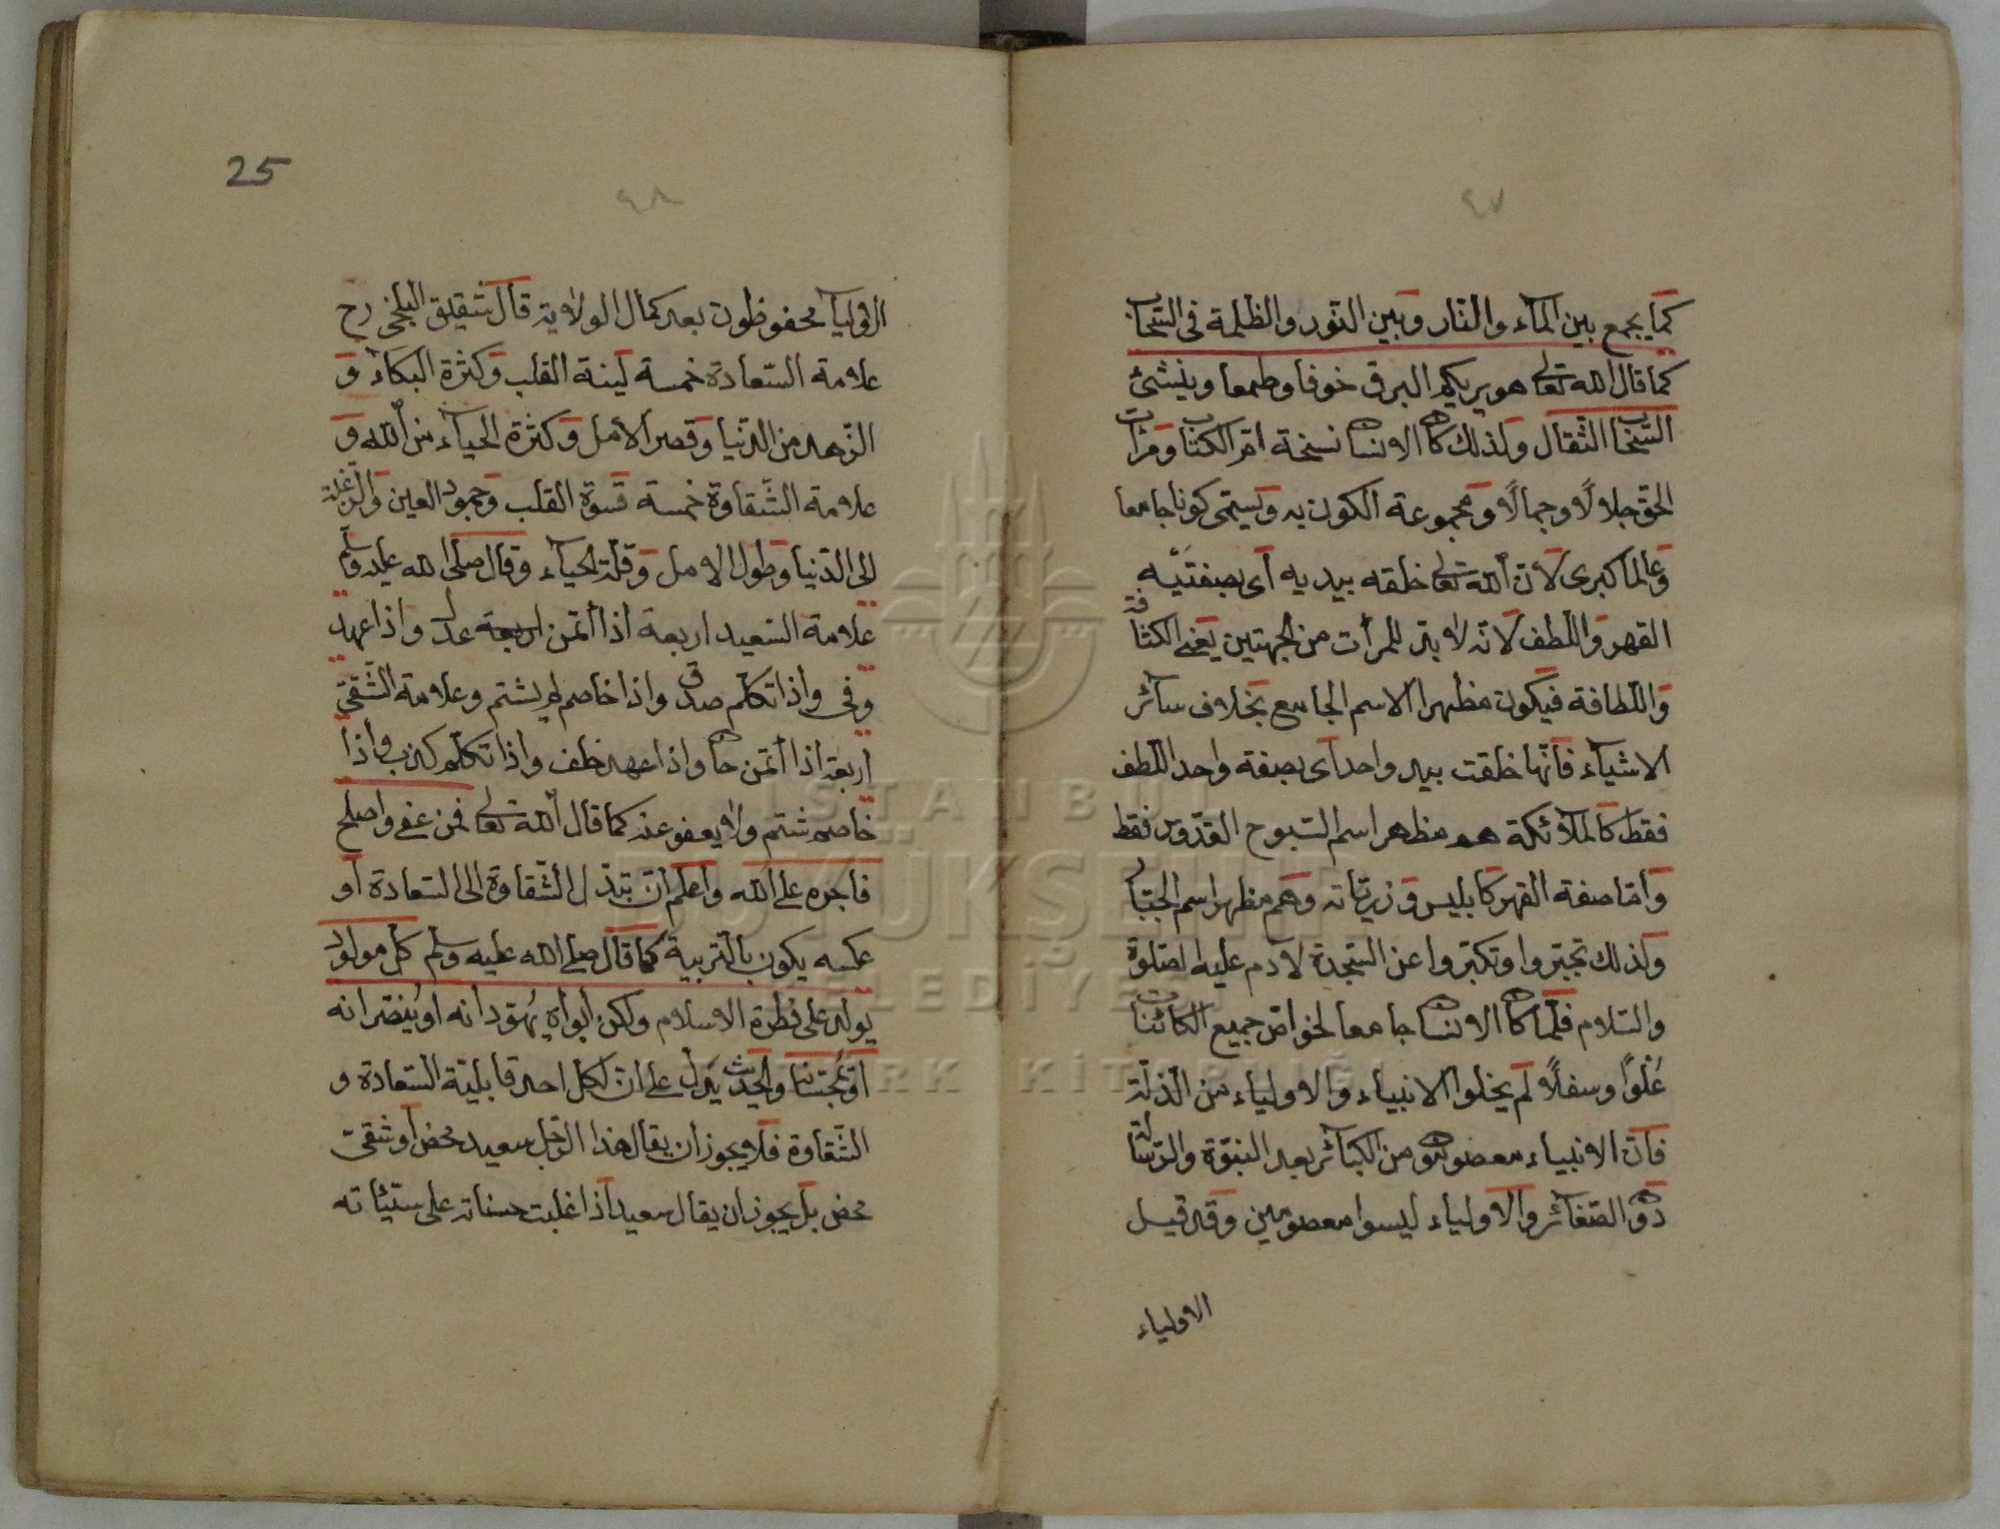 ٤٧
كما يجمع بين الماء والنار وبين النور والظلمة فى السحاب
كما قال الله تعالى هو يريكم البرق خوفا وطمعا وينشئ
السحاب الثقال ولذلك كان الانسان نسخة ام الكتاب ومرات
الحق جلالًا وجمالًا ومجموعة الكون به ويسمى كونا جامعا
وعالما كبرى لان الله تعالى خلقه بيديه أى بصفتيه
القهر واللطف لانه لابد للمرأت من الجهتين يعنى الكثافة
واللطافة فيكون مظهرا الاسم الجامع بخلاف سائر
الاشياء فانها خلقت بيد واحد أى بصفة واحد اللطف
فقط كالملائكة هم مظهر اسم السبوح القدوس فقط
وامّا صفة القهر كابليس وزرياته وهم مظهر اسم الجبار
ولذلك تجبروا وتكبروا عن السجدة لآدم عليه الصلوة
والسلام فلما كان الانسان جامعا لخواص جميع الكائنات
عُلوًا وسفلًا لم يخلوا الانبياء والاولياء من الذلة
فان الانبياء معصومون من الكبائر بعد النبوة والرسالة
دون الصغائر والاولياء ليسوا معصومين وقد قيل
الاولياء
25
٤٨
الاوليآ محفوظون بعد كمال الولاية قال شيقيق البلخى رح
علامة السعادة خمسة لينة القلب وكثرة البكاء و
الزهد من الدنيا وقصر الأمل وكثرة الحياء من الله و
علامة الشقاوة خمسة قسوة القلب وجمود العين والرغبة
الى الدنيا وطول الامل وقلة الحياء وقال صلى الله عليه وسلم
علامة السعيد اربعة أذا أتمن اربعة عدل واذا عهد
وفى واذا تكلم صدق واذا خاصم لم يشتم وعلامة الشّقىّ
اربعة اذا أتمن خان واذا عهد خلف واذا تكلم كذب واذا
خاصم شتم ولا يعفو عنه كما قال الله تعالى فمن عفى واصلح
فاجره على الله واعلم ان تبدّل الشقاوة الى السعادة أو
عكسه يكون بالتربية كما قال صلى الله عليه وسلم كل مولود
يولد على فطرة الاسلام ولكن أبواه يُهوّدانه او يُنصّرانه
او يُمجسانه والحديث يدل على ان لكل احد قابلية السعادة و
الشقاوة فلا يجوز أن يقال هذا الرجل سعيد محض أو شقىّ
محض بل يجوز ان يقال سعيد أذا غلبت حسناته على سيّئاته